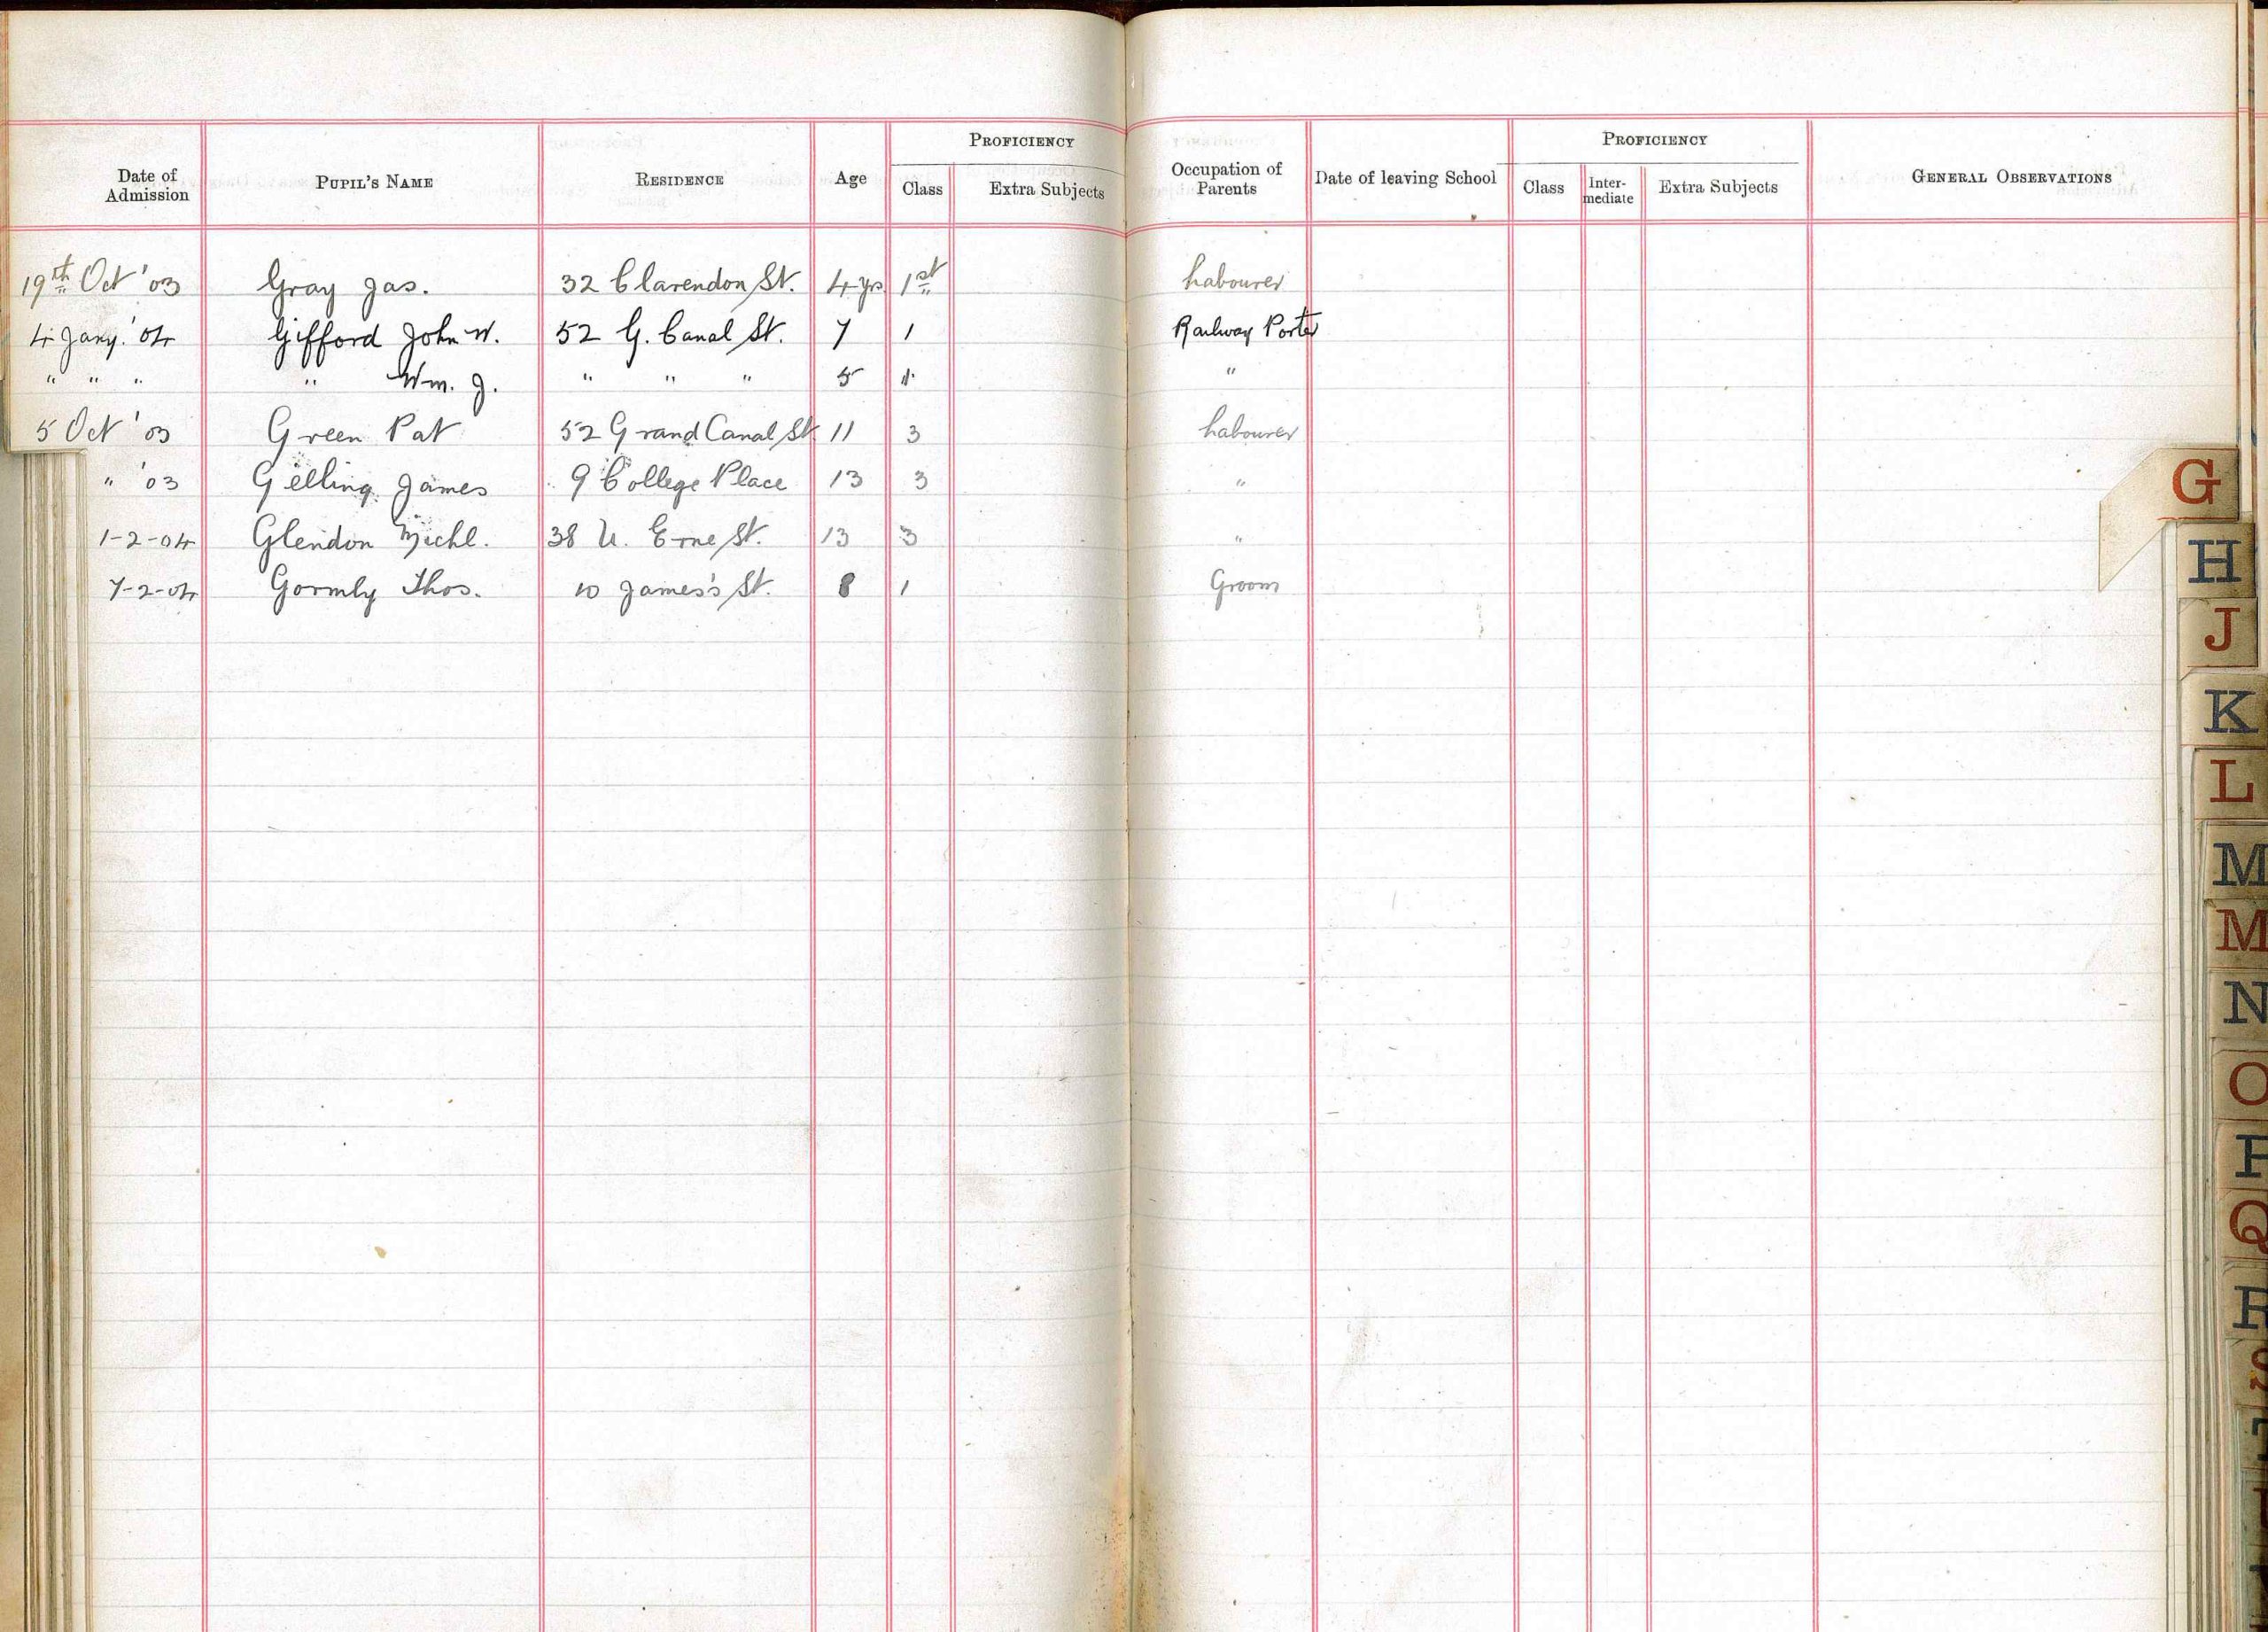 PROFICIENCY PROFICIENCY
Date of Admission PUPIL'S NAME RESIDENCE Age Class Extra Subjects Occupation of Parents Date of leaving School Class Inter-mediate Extra Subjects GENERAL OBSERVATIONS
19th Oct '03 Gray Jas. 32 Clarendon St. 4 yrs 1st Labourer
4 Jany. '04 Gifford John W. 52 G. Canal St. 7 1 Railway Porter
" " " " Wm. J. " " " 5 1 "
5 Oct '03 Green Pat 52 Grand Canal St 11 3 Labourer
" '03 Gelling James 9 College Place 13 3 "
1-2-04 Glendon Michl. 38 U. Erne St. 13 3 "
7-2-04 Gormly Thos. 10 James's St. 8 1 Groom
G
H
J
K
L
M
M
N
O
P
Q
R
S
T